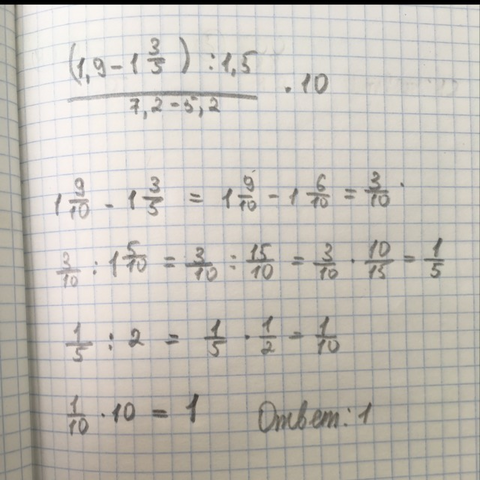 (1,9 - 1 3/5) : 1,5
7,2 - 5,2
· 10
1 9/10 - 1 3/5 = 1 9/10 - 1 6/10 = 3/10
3/10 : 1 5/10 = 3/10 : 15/10 = 3/10 · 10/15 = 1/5
1/5 : 2 = 1/5 · 1/2 = 1/10
1/10 · 10 = 1 Ответ: 1